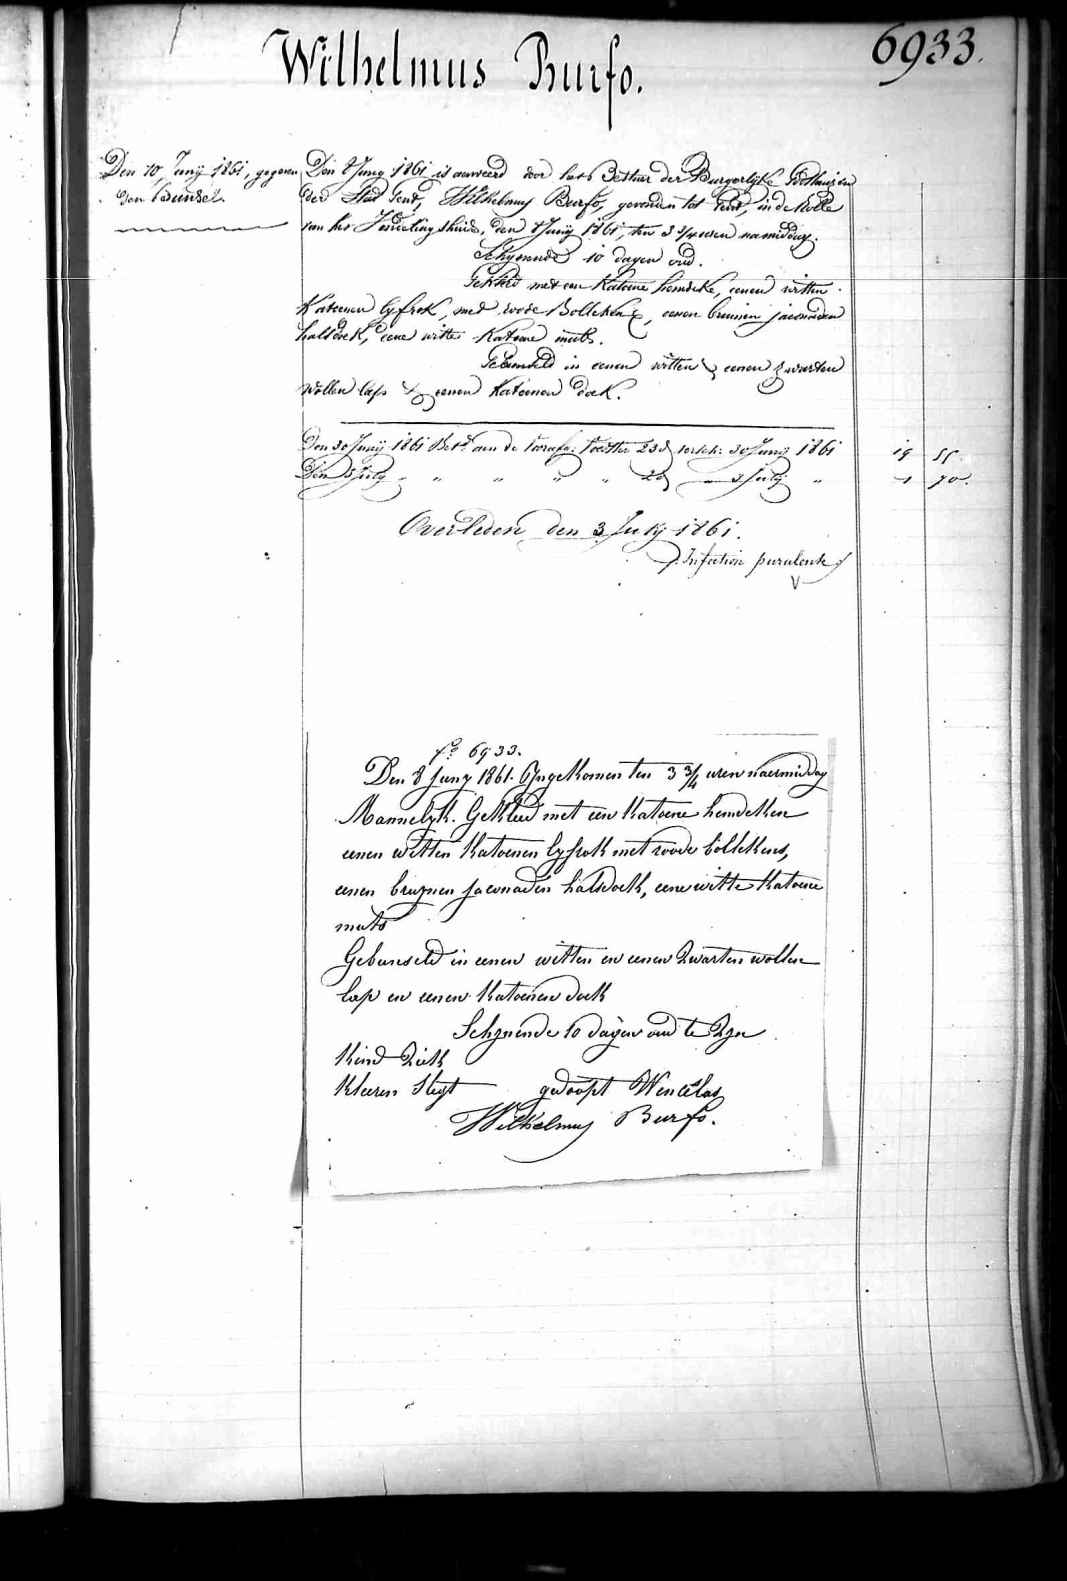 Wilhelmus Burfo.
6933.
Den 10 Juny 1861, gegeven
een bunsel.
Den 8 Juny 1861 is aenveerd door het Bestuur der Burgerlyke Godshuizen
der Stad Gent, Wilhelmus Burfo, gevonden tot Gent, in de Rolle
van het Vondelingshuis, den 8 Juny 1861, ten 3 3/4 uren namiddag.
Schynende 10 dagen oud.
Gekleed met een Katoene hemdeke, eenen witten
Katoenen lyfrok, met roode Bollekens, eenen bruinen jaconaden
halsdoek, eene witte Katoene muts.
Gebunseld in eenen witten & eenen zwarten
wollen lap & eenen Katoenen doek.
Den 30 Juny 1861 Bet. aen de 23 d 30 Juny 1861 19 55.
Den 3 July " " " " 2 d 3 July " 1 70.
Overleden den 3 July 1861.
Infection purulente
fo. 6933.
Den 8 Juny 1861. Yngekomen ten 3 3/4 uren naermiddag
Mannelyk. Gekleed met een Katoene hemdeken
eenen witten Katoenen lyfrok met roode bollekens,
eenen bruynen jaconaden halsdoek, eene witte Katoene
muts
Gebunseld in eenen witten en eenen zwarten wollen
lap en eenen Katoenen doek
Schynende 10 dagen oud te zyn
Kind Ziek
Kleeren Slegt gedoopt Wenceslas
Wilhelmus Burfo.